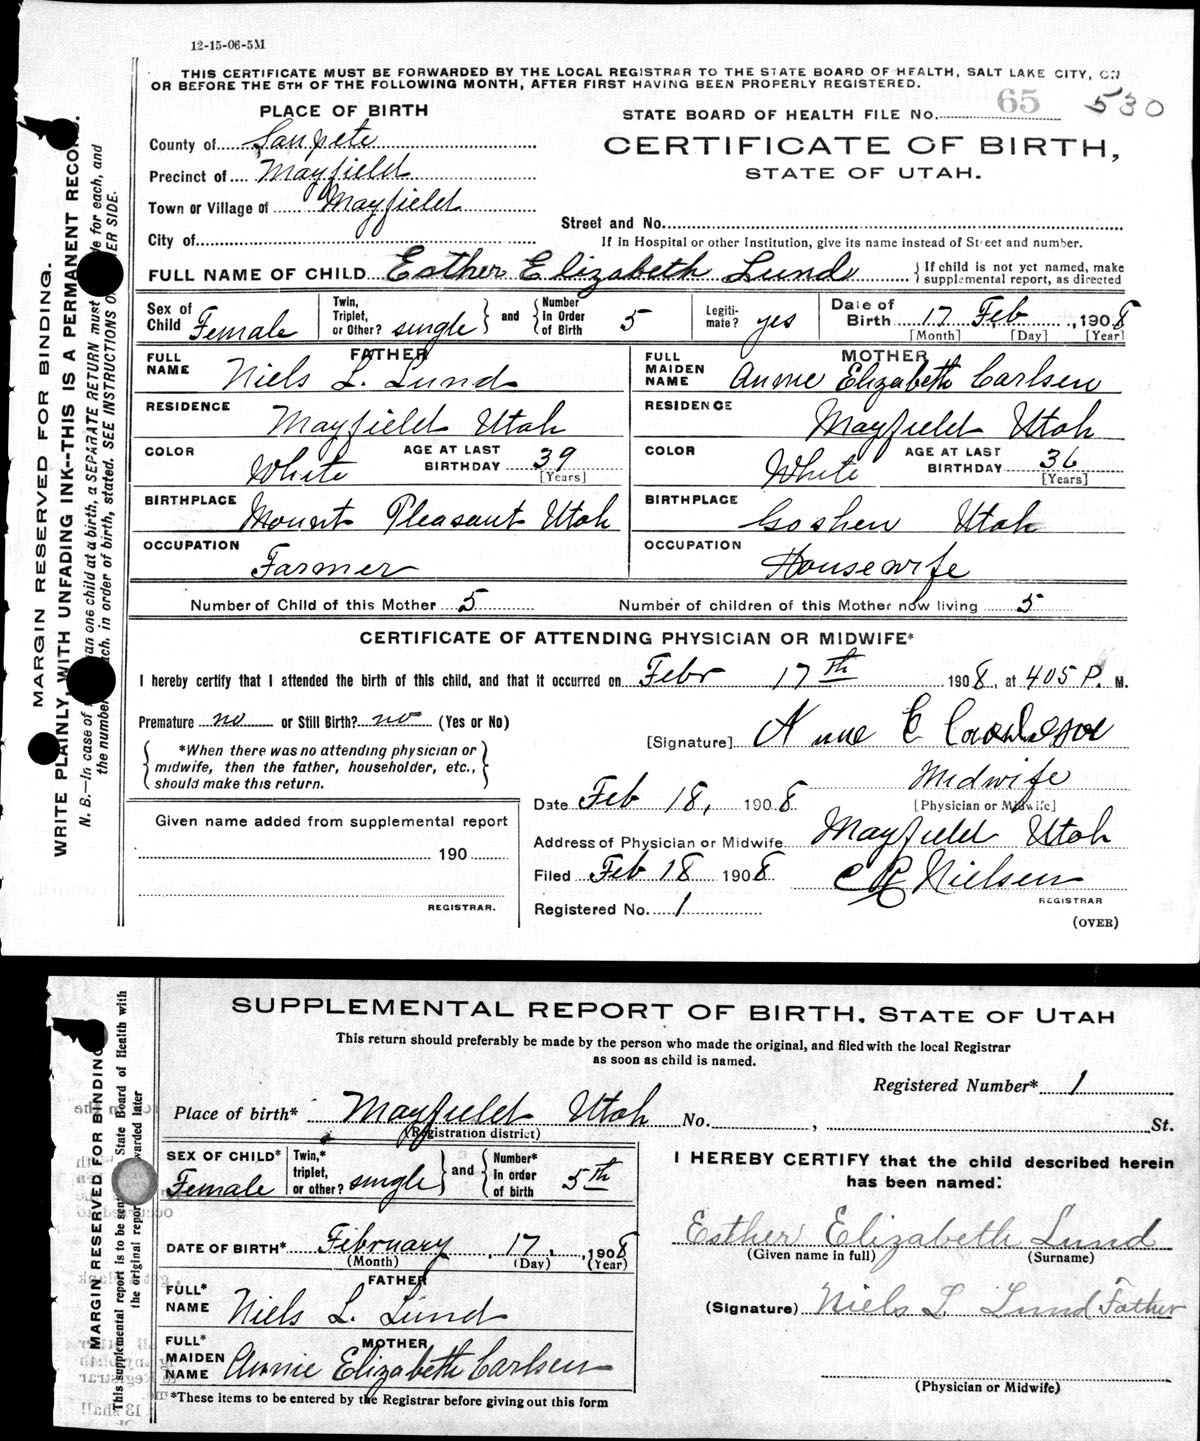 12-15-06-5M
THIS CERTIFICATE MUST BE FORWARDED BY THE LOCAL REGISTRAR TO THE STATE BOARD OF HEALTH, SALT LAKE CITY, ON
OR BEFORE THE 5TH OF THE FOLLOWING MONTH, AFTER FIRST HAVING BEEN PROPERLY REGISTERED.
PLACE OF BIRTH
STATE BOARD OF HEALTH FILE No. 65 530
County of Sanpete
CERTIFICATE OF BIRTH,
STATE OF UTAH.
Precinct of Mayfield
Town or Village of Mayfield
Street and No.
City of
If in Hospital or other Institution, give its name instead of Street and number.
FULL NAME OF CHILD Esther Elizabeth Lund { If child is not yet named, make supplemental report, as directed
Sex of Child Female
Twin, Triplet, or Other? single } and { Number in Order of Birth 5
Legitimate? yes
Date of Birth 17 Feb, 1908
[Month] [Day] [Year]
FATHER
FULL NAME Niels L. Lund
MOTHER
FULL MAIDEN NAME Annie Elizabeth Carlsen
RESIDENCE Mayfield Utah
RESIDENCE Mayfield Utah
COLOR White AGE AT LAST BIRTHDAY 39 [Years]
COLOR White AGE AT LAST BIRTHDAY 36 [Years]
BIRTHPLACE Mount Pleasant Utah
BIRTHPLACE Goshen Utah
OCCUPATION Farmer
OCCUPATION Housewife
Number of Child of this Mother 5 Number of children of this Mother now living 5
CERTIFICATE OF ATTENDING PHYSICIAN OR MIDWIFE*
I hereby certify that I attended the birth of this child, and that it occurred on Febr 17th 1908, at 405 P. M.
Premature no or Still Birth? no (Yes or No)
[Signature]
*When there was no attending physician or
midwife, then the father, householder, etc.,
should make this return.
Midwife
[Physician or Midwife]
Date Feb 18, 1908
Given name added from supplemental report
190
REGISTRAR.
Address of Physician or Midwife Mayfield Utah
Filed Feb 18 1908 Nielsen
REGISTRAR
Registered No. 1
(OVER)
MARGIN RESERVED FOR BINDING.
WRITE PLAINLY, WITH UNFADING INK--THIS IS A PERMANENT RECORD.
N. B.—In case of an one child at a birth, a SEPARATE RETURN must e for each, and
the number ach. in order of birth, stated. SEE INSTRUCTIONS O ER SIDE.
SUPPLEMENTAL REPORT OF BIRTH, STATE OF UTAH
This return should preferably be made by the person who made the original, and filed with the local Registrar
as soon as child is named.
Registered Number* 1
Place of birth* Mayfield Utah No. , St.
(Registration district)
SEX OF CHILD* Female
Twin,* triplet, or other? single } and { Number* in order of birth 5th
I HEREBY CERTIFY that the child described herein
has been named:
Esther Elizabeth Lund
(Given name in full) (Surname)
DATE OF BIRTH* February, 17, 1908
(Month) (Day) (Year)
FATHER
FULL* NAME Niels L. Lund
(Signature) Niels L. Lund Father
MOTHER
FULL* MAIDEN NAME Annie Elizabeth Carlsen
(Physician or Midwife)
*These items to be entered by the Registrar before giving out this form
MARGIN RESERVED FOR BINDING
This supplemental report is to be sen State Board of Health with
the original repor warded later